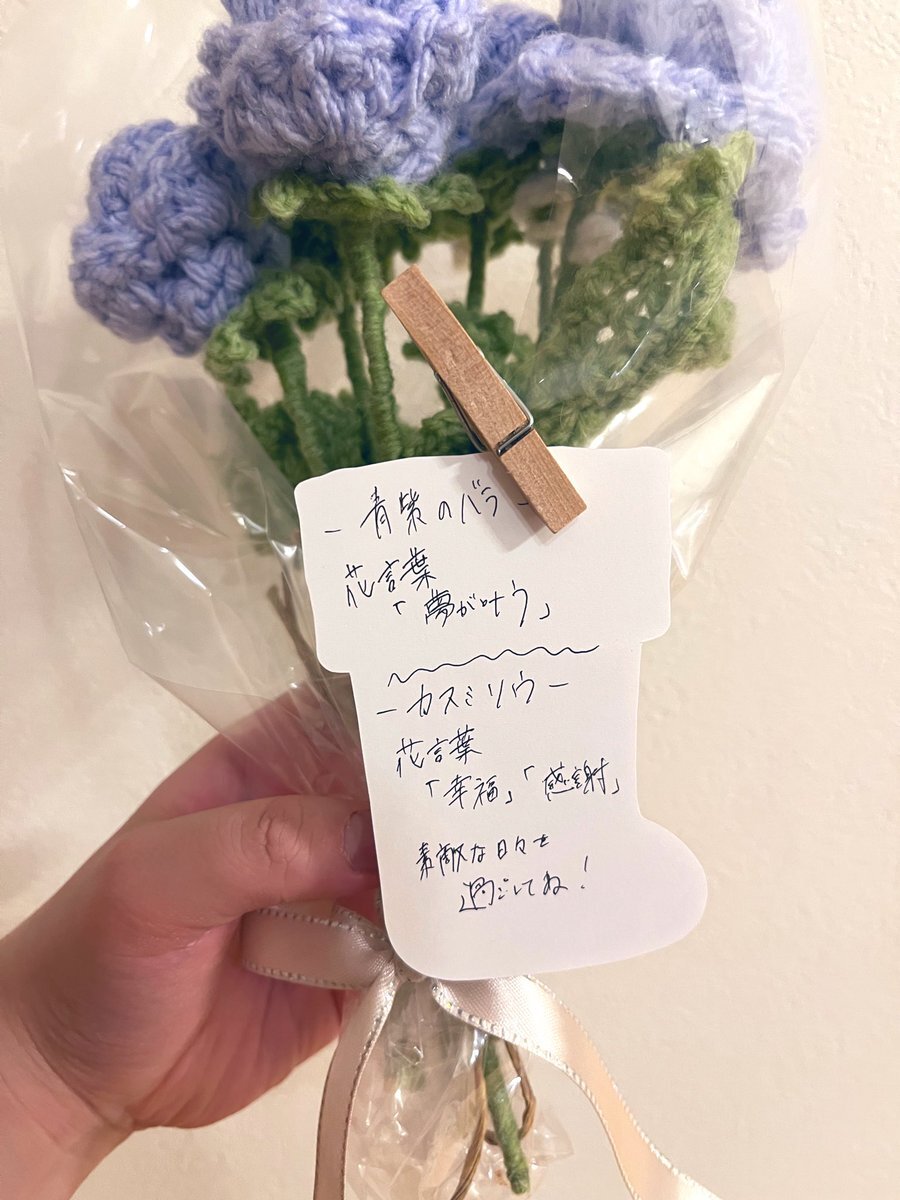 - 青紫のバラ -
花言葉
「夢が叶う」
- カスミソウ -
花言葉
「幸福」「感謝」
素敵な日々を
過ごしてね！